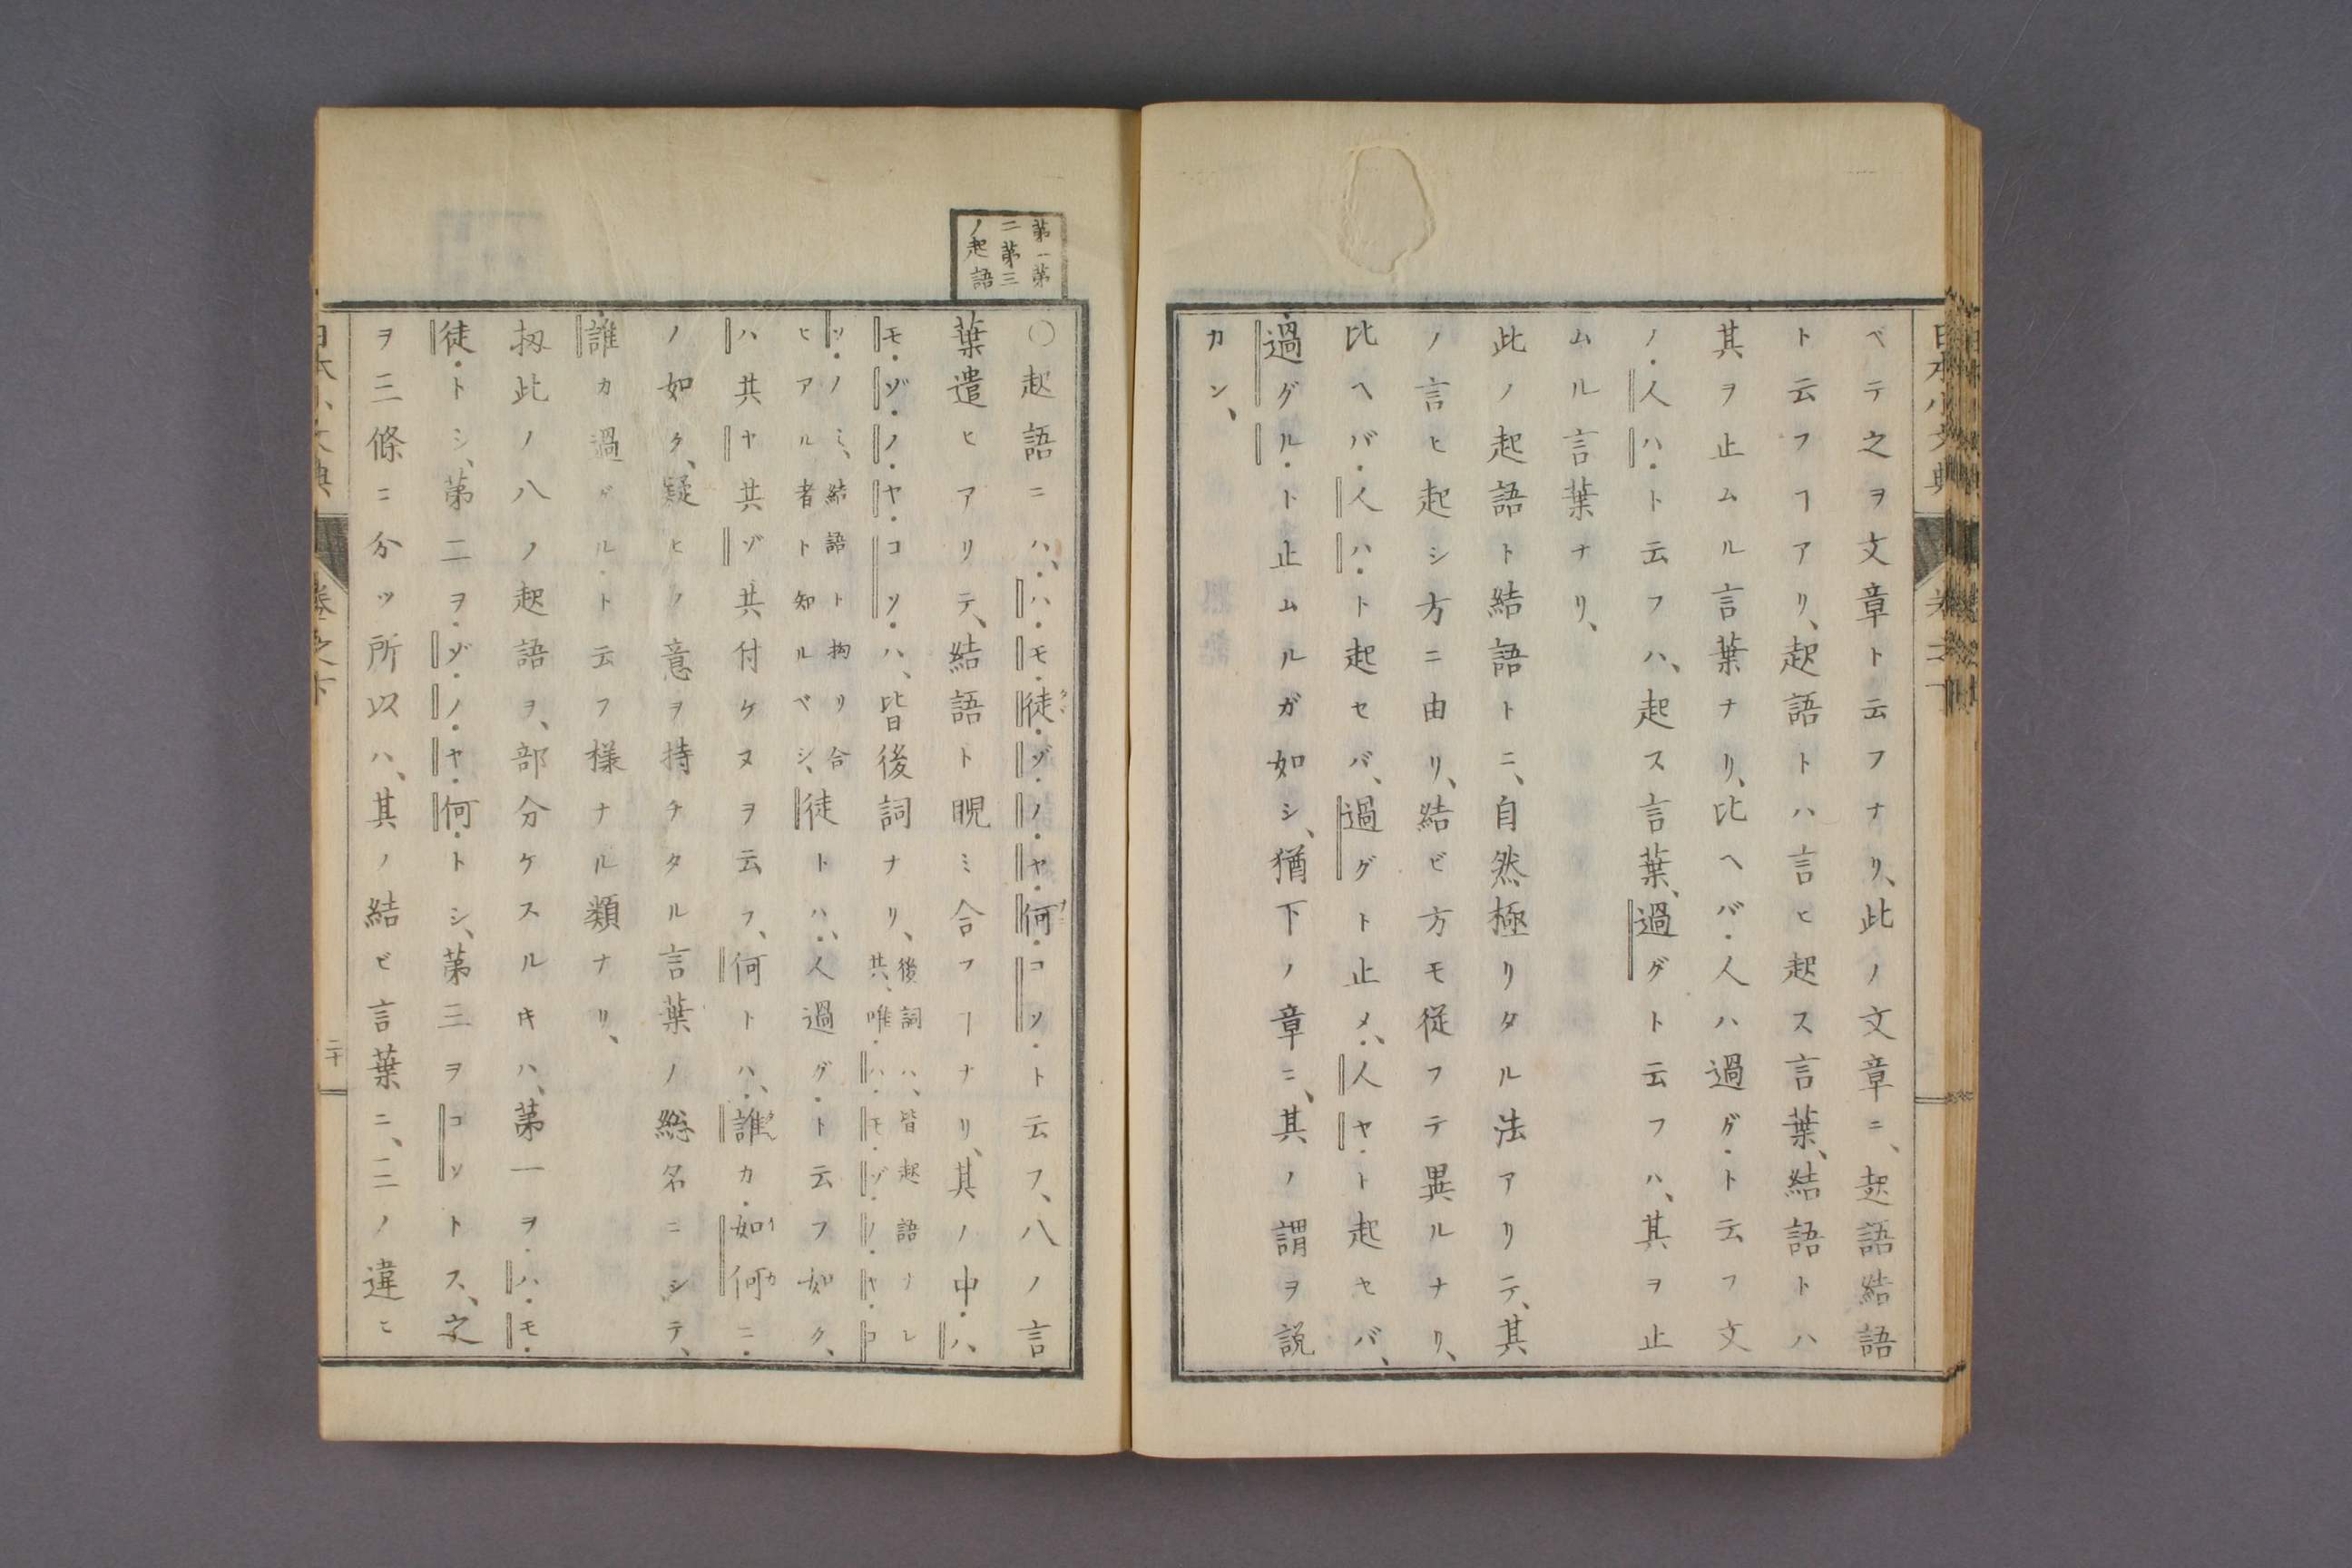 ベテ之ヲ文章ト云フナリ、此ノ文章ニ、起語結語
ト云フヿアリ、起語トハ言ヒ起ス言葉、結語トハ
其ヲ止ムル言葉ナリ、比ヘバ・人ハ過グ・ト云フ文
ノ・人ハ・ト云フハ、起ス言葉、過グト云フハ、其ヲ止
ムル言葉ナリ、
此ノ起語ト結語トニ、自然極リタル法アリテ、其
ノ言ヒ起シ方ニ由リ、結ビ方モ從フテ異ルナリ、
比ヘバ・人ハ・ト起セバ、過グト止メ、・人ヤ・ト起セバ、
・過グル・ト止ムルガ如シ、猶下ノ章ニ、其ノ謂ヲ説
カン、
第一第
二第三
ノ起語
〇起語ニハ、・ハ・モ・徒・ゾ・ノ・ヤ・何・コソ・ト云フ、八ノ言
葉遣ヒアリテ、結語ト睨ミ合フヿナリ、其ノ中・ハ・
モ・ゾ・ノ・ヤ・コソ・ハ、皆後詞ナリ、
後詞ハ、皆起語ナレ
共、唯・ハ・モ・ゾ・ノ・ヤ・コ
ソ・ノミ、結語ト拘リ合
ヒアル者ト知ルベシ、
徒トハ、・人過グ・ト云フ如ク、
ハ共ヤ共ゾ共付ケヌヲ云フ、何トハ、・誰カ・如何ニ・
ノ如ク、疑ヒノ意ヲ持チタル言葉ノ総名ニシテ、
・誰カ過グル・ト云フ様ナル類ナリ、
扨此ノ八ノ起語ヲ、部分ケスルキハ、第一ヲ・ハ・モ・
徒・トシ、第二ヲ・ゾ・ノ・ヤ・何・トシ、第三ヲコソトス、之
ヲ三條ニ分ツ所以ハ、其ノ結ビ言葉ニ、三ノ違ヒ
卷之下
二十